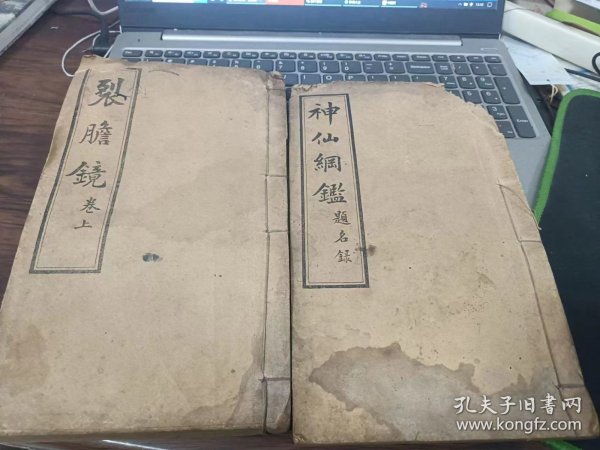 裂膽鏡卷上
神仙綱鑑題名錄
孔夫子旧書网
www.kongfz.com